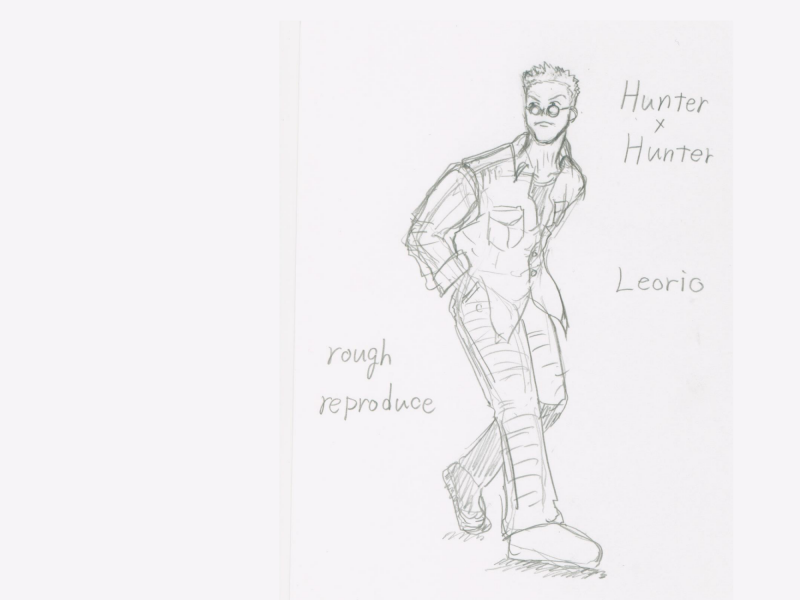 Hunter
x
Hunter
Leorio
rough
reproduce